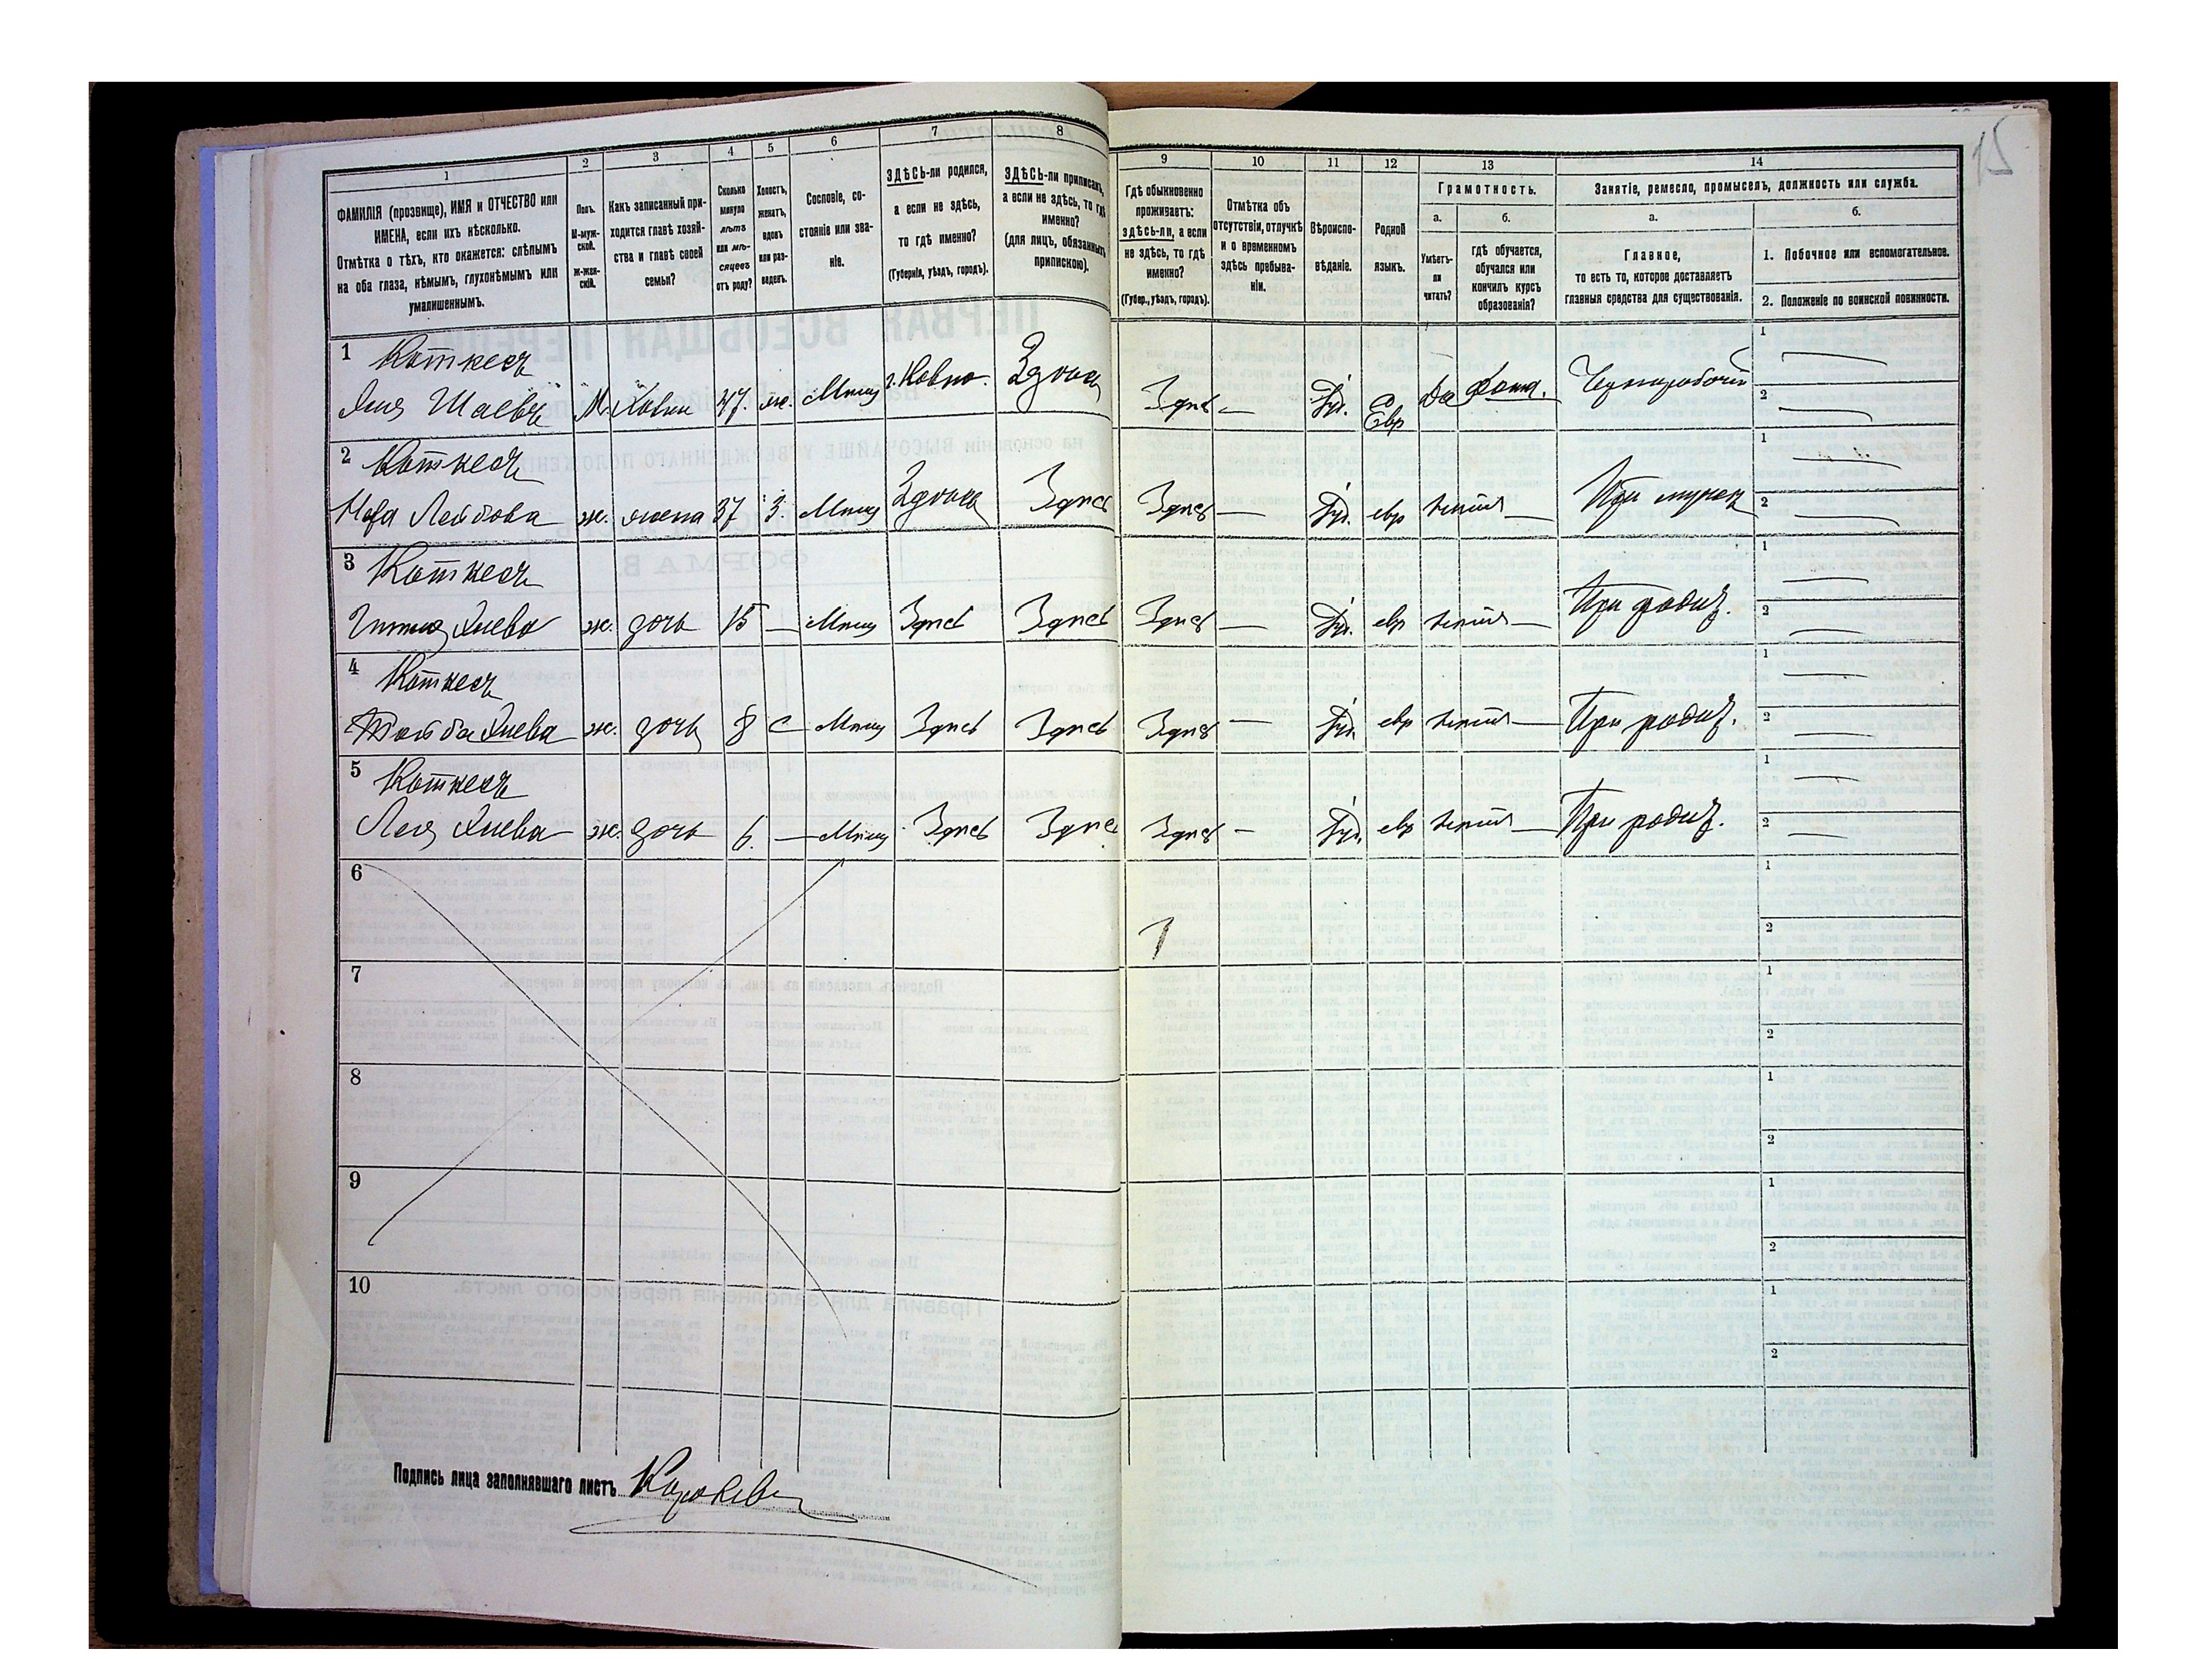 15
1
2
3
4
5
6
7
8
9
10
11
12
13
14
ФАМИЛІЯ (прозвище), ИМЯ и ОТЧЕСТВО или
ИМЕНА, если ихъ нѣсколько.
Отмѣтка о тѣхъ, кто окажется: слѣпымъ
на оба глаза, нѣмымъ, глухонѣмымъ или
умалишеннымъ.
Полъ.
М-муж-
ской.
Ж-жен-
скій.
Какъ записанный при-
ходится главѣ хозяй-
ства и главѣ своей
семьи?
Сколько
минуло
лѣтъ
или мѣ-
сяцевъ
отъ роду?
Холостъ,
женатъ,
вдовъ
или раз-
веденъ.
Сословіе, со-
стояніе или зва-
ніе.
ЗДѢСЬ-ли родился,
а если не здѣсь,
то гдѣ именно?
(Губернія, уѣздъ, городъ).
ЗДѢСЬ-ли приписанъ,
а если не здѣсь, то гдѣ
именно?
(для лицъ, обязанныхъ
припискою).
Гдѣ обыкновенно
проживаетъ:
здѣсь-ли, а если
не здѣсь, то гдѣ
именно?
(Губер., уѣздъ, городъ).
Отмѣтка объ
отсутствіи, отлучкѣ
и о временномъ
здѣсь пребыва-
ніи.
Вѣроиспо-
вѣданіе.
Родной
языкъ.
Грамотность.
а.
б.
Умѣетъ-
ли
читать?
гдѣ обучается,
обучался или
кончилъ курсъ
образованія?
Занятіе, ремесло, промыселъ, должность или служба.
а.
б.
Главное,
то есть то, которое доставляетъ
главныя средства для существованія.
1. Побочное или вспомогательное.
2. Положеніе по воинской повинности.
1 Коткесъ
Шаевъ М. Хозяин 47. ж. Мѣщ г. Ковно. Здѣсь Здѣсь — Іуд. Евр Да Чернорабочій
1 —
2 —
2 Коткесъ
Лейбова ж. жена 37 З. Мѣщ Здѣсь Здѣсь Здѣсь — Іуд. евр При мужѣ
1 —
2 —
3 Коткесъ
ж. дочь 15 — Мѣщ Здѣсь Здѣсь Здѣсь — Іуд. евр При родит.
1 —
2 —
4 Коткесъ
ж. дочь 8 Мѣщ Здѣсь Здѣсь Здѣсь — Іуд. евр При родит.
1 —
2 —
5 Коткесъ
Лея ж. дочь 6. — Мѣщ Здѣсь Здѣсь Здѣсь — Іуд. евр При родит.
1 —
2 —
6
1
2
7
1
2
8
1
2
9
1
2
10
1
2
Подпись лица заполнявшаго листъ